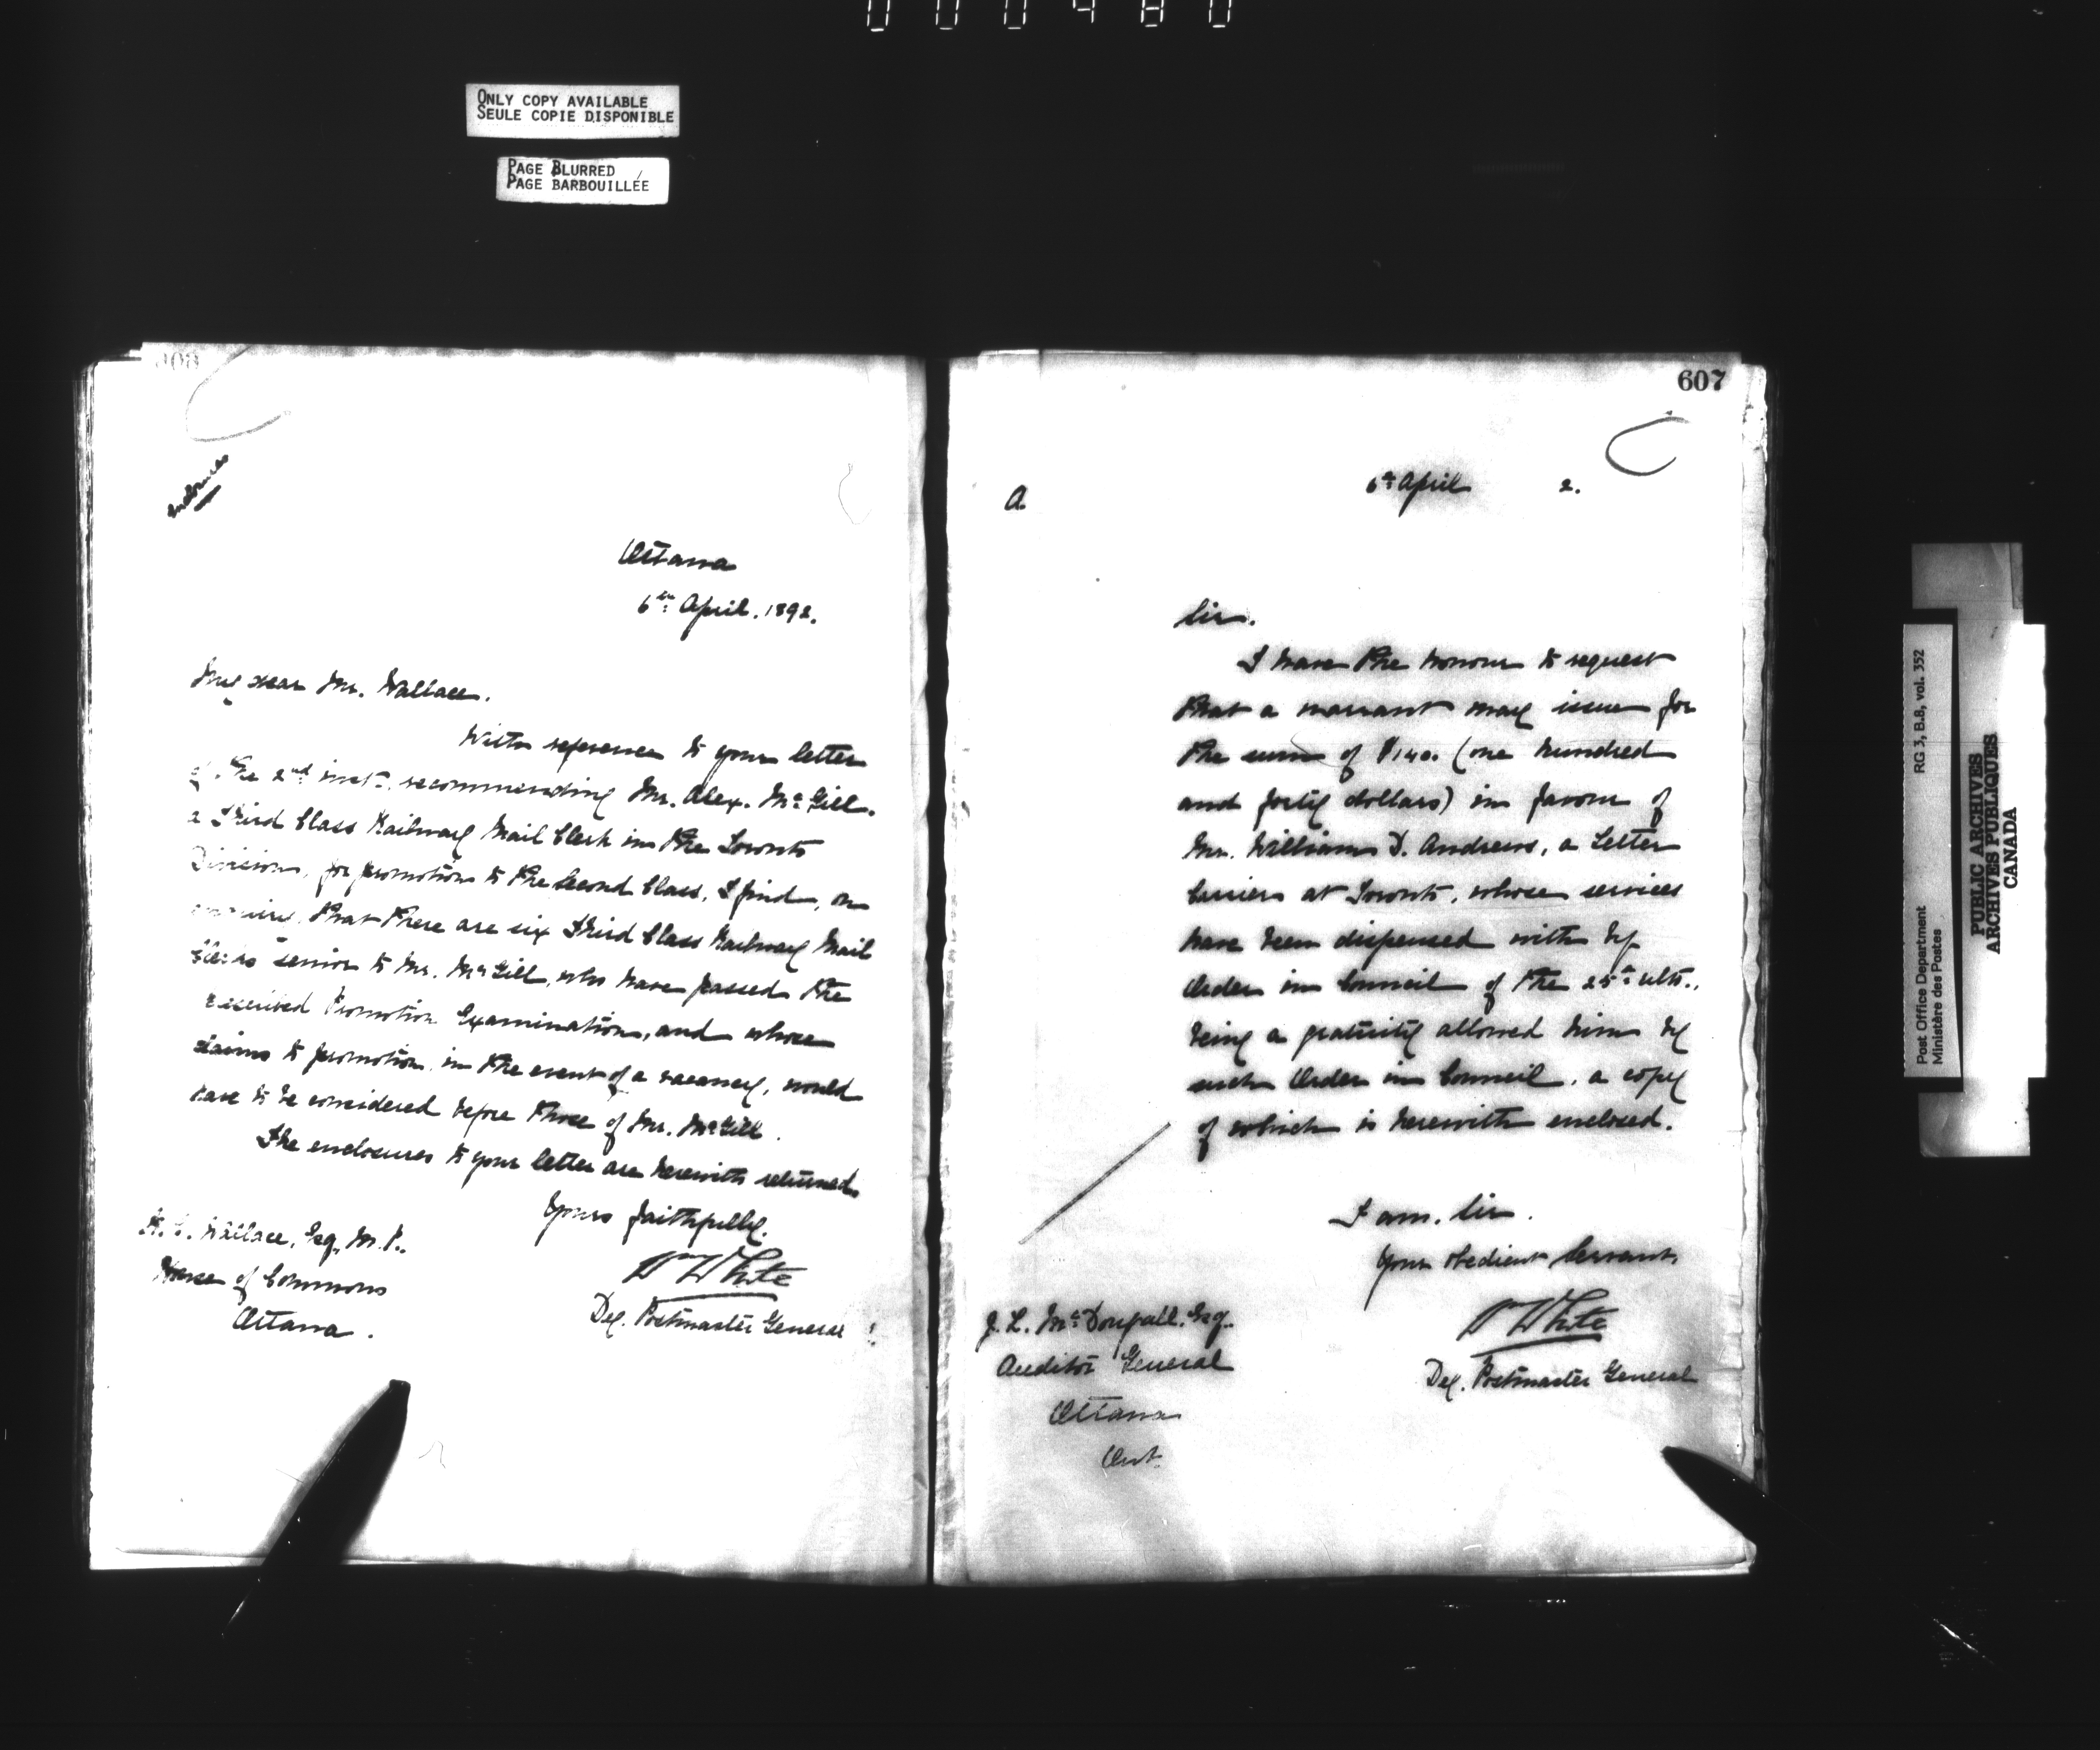 000480
ONLY COPY AVAILABLE
SEULE COPIE DISPONIBLE
PAGE BLURRED
PAGE BARBOUILLÉE
Ottawa
6th April. 1892.
My dear Mr. Wallace.
With reference to your letter
of the 2nd inst. recommending Mr. Alex. McGill.
a Third Class Railway Mail Clerk in the Toronto
Division, for promotion to the Second Class, I find, on
enquiry, that there are six Third Class Railway Mail
Clerks senior to Mr. McGill, who have passed the
Promotion Examination, and whose
claims to promotion, in the event of a vacancy, would
have to be considered before those of Mr. McGill.
The enclosures to your letter are herewith returned.
Yours faithfully.
Wallace, Esq, M.P.
House of Commons
Ottawa.
W White
Dey. Postmaster General
607
A.
6th April 2.
Sir.
I have the honour to request
that a warrant may issue for
the sum of $140. (one hundred
and forty dollars) in favour of
Mr. William D. Andrews, a Letter
Carrier at Toronto, whose services
have been dispensed with by
Order in Council of the 25th ulto.,
being a gratuity allowed him by
such Order in Council, a copy
of which is herewith enclosed.
I am. Sir.
Your obedient Servant.
W White
Dey. Postmaster General
J. L. McDougall. Esq.
Auditor General
Ottawa
Ont.
Post Office Department RG 3, B.8, vol. 352
Ministère des Postes
PUBLIC ARCHIVES
ARCHIVES PUBLIQUES
CANADA